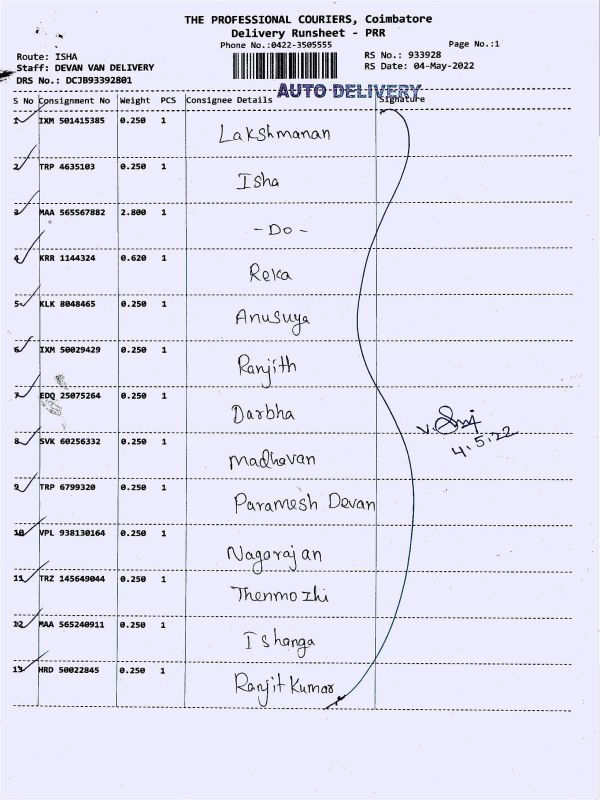 THE PROFESSIONAL COURIERS, Coimbatore
Delivery Runsheet - PRR
Phone No.:0422-3505555
Page No.:1
Route: ISHA
RS No.: 933928
Staff: DEVAN VAN DELIVERY
RS Date: 04-May-2022
DRS No.: DCJB93392801
AUTO DELIVERY
S No Consignment No Weight PCS Consignee Details Signature
1 IXM 501415385 0.250 1 Lakshmanan
2 TRP 4635103 0.250 1 Isha
3 MAA 565567882 2.800 1 - Do -
4 KRR 1144324 0.620 1 Reka
5 KLK 8048465 0.250 1 Anusuya
6 IXM 50029429 0.250 1 Ranjith
7 EDQ 25075264 0.250 1 Darbha
8 SVK 60256332 0.250 1 Madhavan
9 TRP 6799320 0.250 1 Paramesh Devan
10 VPL 938130164 0.250 1 Nagarajan
11 TRZ 145649044 0.250 1 Thenmozhi
12 MAA 565240911 0.250 1 Ishanga
13 HRD 50022845 0.250 1 Ranjit Kumar
4.5.22